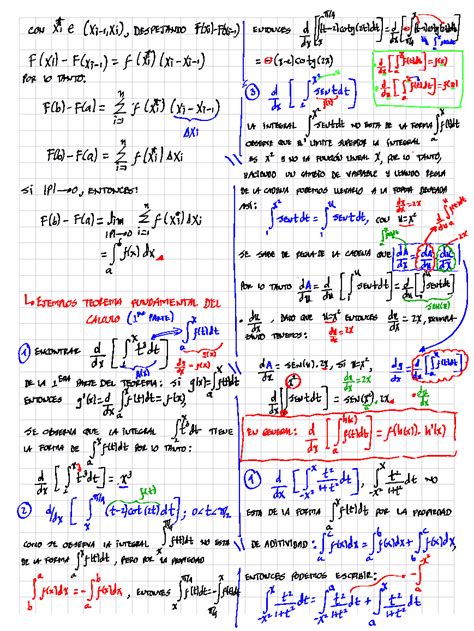 CON Xi* ∈ (Xi-1, Xi), DESPEJANDO F(Xi)-F(Xi-1)
F(Xi) - F(Xi-1) = f(Xi*)(Xi - Xi-1)
POR LO TANTO:
F(b) - F(a) = Σ i=1 n f(Xi*) (Xi - Xi-1)
ΔXi
F(b) - F(a) = Σ i=1 n f(Xi*) ΔXi
SI |P|→0, ENTONCES:
F(b) - F(a) = lim |P|→0 Σ i=1 n f(Xi*) ΔXi
= ∫a b f(x) dx
EJEMPLOS TEOREMA FUNDAMENTAL DEL
CALCULO (1RA PARTE) ∫a x f(t)dt
① ENCONTRAR d/dx [∫1 x t³dt]
DE LA 1ERA PARTE DEL TEOREMA: SI g(x)=∫a x f(t)dt
ENTONCES g'(x) = d/dx ∫a x f(t)dt = f(x),
SE OBSERVA QUE LA INTEGRAL ∫1 x t³dt TIENE
LA FORMA DE ∫a x f(t)dt POR LO TANTO:
d/dx [∫1 x t³dt] = x³
f(t)
② d/dx [∫x π/4 (t-2)cot(2t)dt]; 0<t<π/2
COMO SE OBSERVA LA INTEGRAL ∫x π/4 f(t)dt NO ESTA
DE LA FORMA ∫a x f(t)dt, PERO POR LA PROPIEDAD
∫a b f(x)dx = -∫b a f(x)dx, ENTONCES ∫x π/4 f(t)dt = -∫π/4 x f(t)dt
ENTONCES d/dx [∫x π/4 (t-2)cot(2t)dt] = d/dx [-∫π/4 x (t-2)cot(2t)dt]
= -(x-2)cot(2x)
d/dx [∫a x f(t)dt] = f(x)
③ d/dx [∫1 x² sen t dt]
LA INTEGRAL ∫1 x² sen t dt NO ESTA DE LA FORMA ∫a x f(t)dt
OBSERVE QUE EL LIMITE SUPERIOR LA INTEGRAL
ES X² Y NO LA FUNCIÓN LINEAL X, POR LO TANTO,
HACIENDO UN CAMBIO DE VARIABLE Y USANDO REGLA
DE LA CADENA PODEMOS LLEVARLO A LA FORMA DESEADA
ASI: du/dx = 2x
∫1 x² sen t dt = ∫1 u sen t dt, CON u=x²
SE SABE DE REGLA DE LA CADENA QUE dA/dx = dA/du · du/dx
POR LO TANTO dA/du = d/du [∫1 u sen t dt]
sen(u)
· du/dx, DADO QUE u=x² ENTONCES du/dx = 2x,
TENEMOS:
dA/dx = sen(u)·2x, SI u=x²,
d/dx [∫1 x² sen t dt] = sen(x²)·2x
EN GENERAL: d/dx [∫a h(x) f(t)dt] = f(h(x))·h'(x)
④ d/dx [∫-x² x t²/1+t² dt], ∫-x² x t²/1+t² dt NO
ESTA DE LA FORMA ∫a x f(t)dt POR LA PROPIEDAD
DE ADITIVIDAD: ∫a c f(x)dx = ∫a b f(x)dx + ∫b c f(x)dx,
ENTONCES PODEMOS ESCRIBIR:
∫-x² x t²/1+t² dt = ∫-x² a t²/1+t² dt + ∫a x t²/1+t² dt